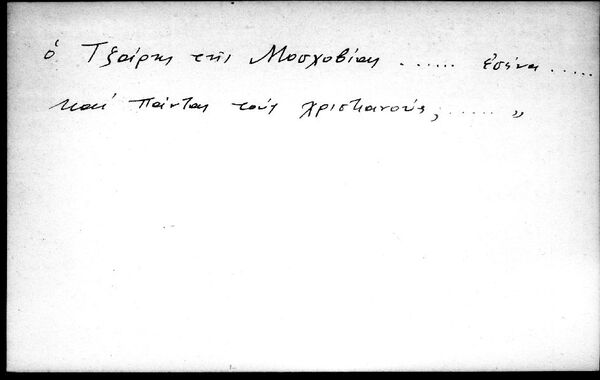 ὁ Τζαίρης τῆς Μοσχοβίας ...... ἐσένα .....
καί πάντας τούς χριστιανούς, ...... „